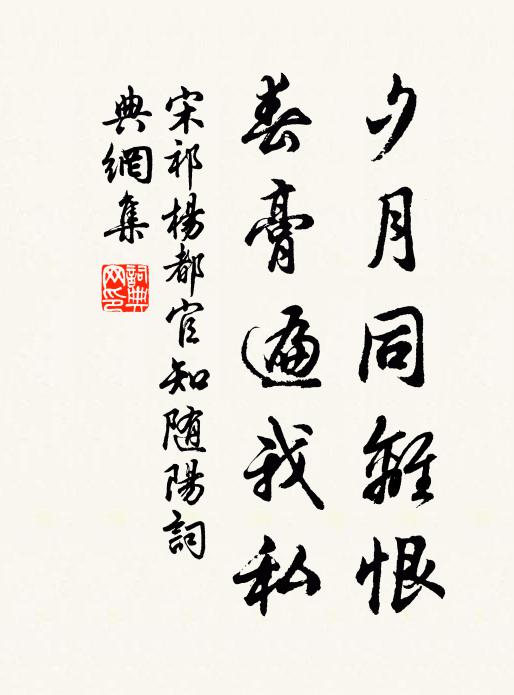 夕月同離恨
春膏遍我私
宋祁楊都官知随陽詞
典網集
詞典
网印